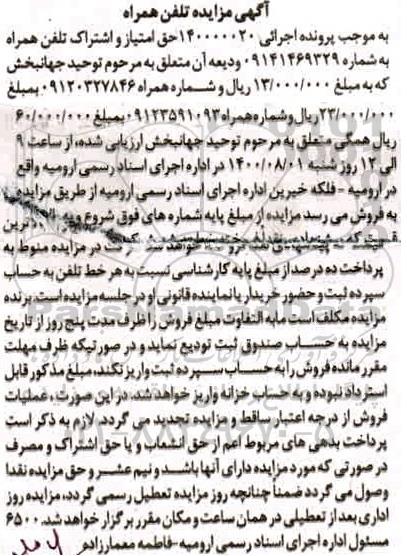 آگهی مزایده تلفن همراه
به موجب پرونده اجرائی ۱۴۰۰۰۰۰۲۰ حق امتیاز و اشتراک تلفن همراه
به شماره ۰۹۱۴۱۴۶۹۳۲۹ ودیعه آن متعلق به مرحوم توحید جهانبخش
که به مبلغ ۱۳/۰۰۰/۰۰۰ ریال و شماره همراه ۰۹۱۲۰۳۲۷۸۴۶ بمبلغ
۲۳/۰۰۰/۰۰۰ ریال وشماره همراه ۰۹۱۲۳۵۹۱۰۹۳ بمبلغ ۶۰/۰۰۰/۰۰۰
ریال همگی متعلق به مرحوم توحید جهانبخش ارزیابی شده، از ساعت ۹
الی ۱۲ روز شنبه ۱۴۰۰/۰۸/۰۱ در اداره اجرای اسناد رسمی ارومیه واقع
در ارومیه - فلکه خیرین اداره اجرای اسناد رسمی ارومیه از طریق مزایده
به فروش می رسد مزایده از مبلغ پایه شماره های فوق شروع و
خواهد شد در مزایده منوط به
پرداخت ده درصد از مبلغ پایه کارشناسی نسبت به هر خط تلفن به حساب
سپرده ثبت و حضور خریدار یا نماینده قانونی او در جلسه مزایده است. برنده
مزایده مکلف است مابه التفاوت مبلغ فروش را ظرف مدت پنج روز از تاریخ
مزایده به حساب صندوق ثبت تودیع نماید و در صورتیکه ظرف مهلت
مقرر مانده فروش را به حساب سپرده ثبت واریز نکند، مبلغ مذکور قابل
استرداد نبوده و به حساب خزانه واریز خواهد شد، در این صورت ، عملیات
فروش از درجه اعتبار ساقط و مزایده تجدید می گردد. لازم به ذکر است
پرداخت بدهی های مربوط اعم از حق انشعاب و یا حق اشتراک و مصرف
در صورتی که مورد مزایده دارای آنها باشد و نیم عشر و حق مزایده نقدا
وصول می گردد ضمناً چنانچه روز مزایده تعطیل رسمی گردد، مزایده روز
اداری بعد از تعطیلی در همان ساعت و مکان مقرر برگزار خواهد شد. ۶۵۰۰
مسئول اداره اجرای اسناد رسمی ارومیه-فاطمه معمارزاده